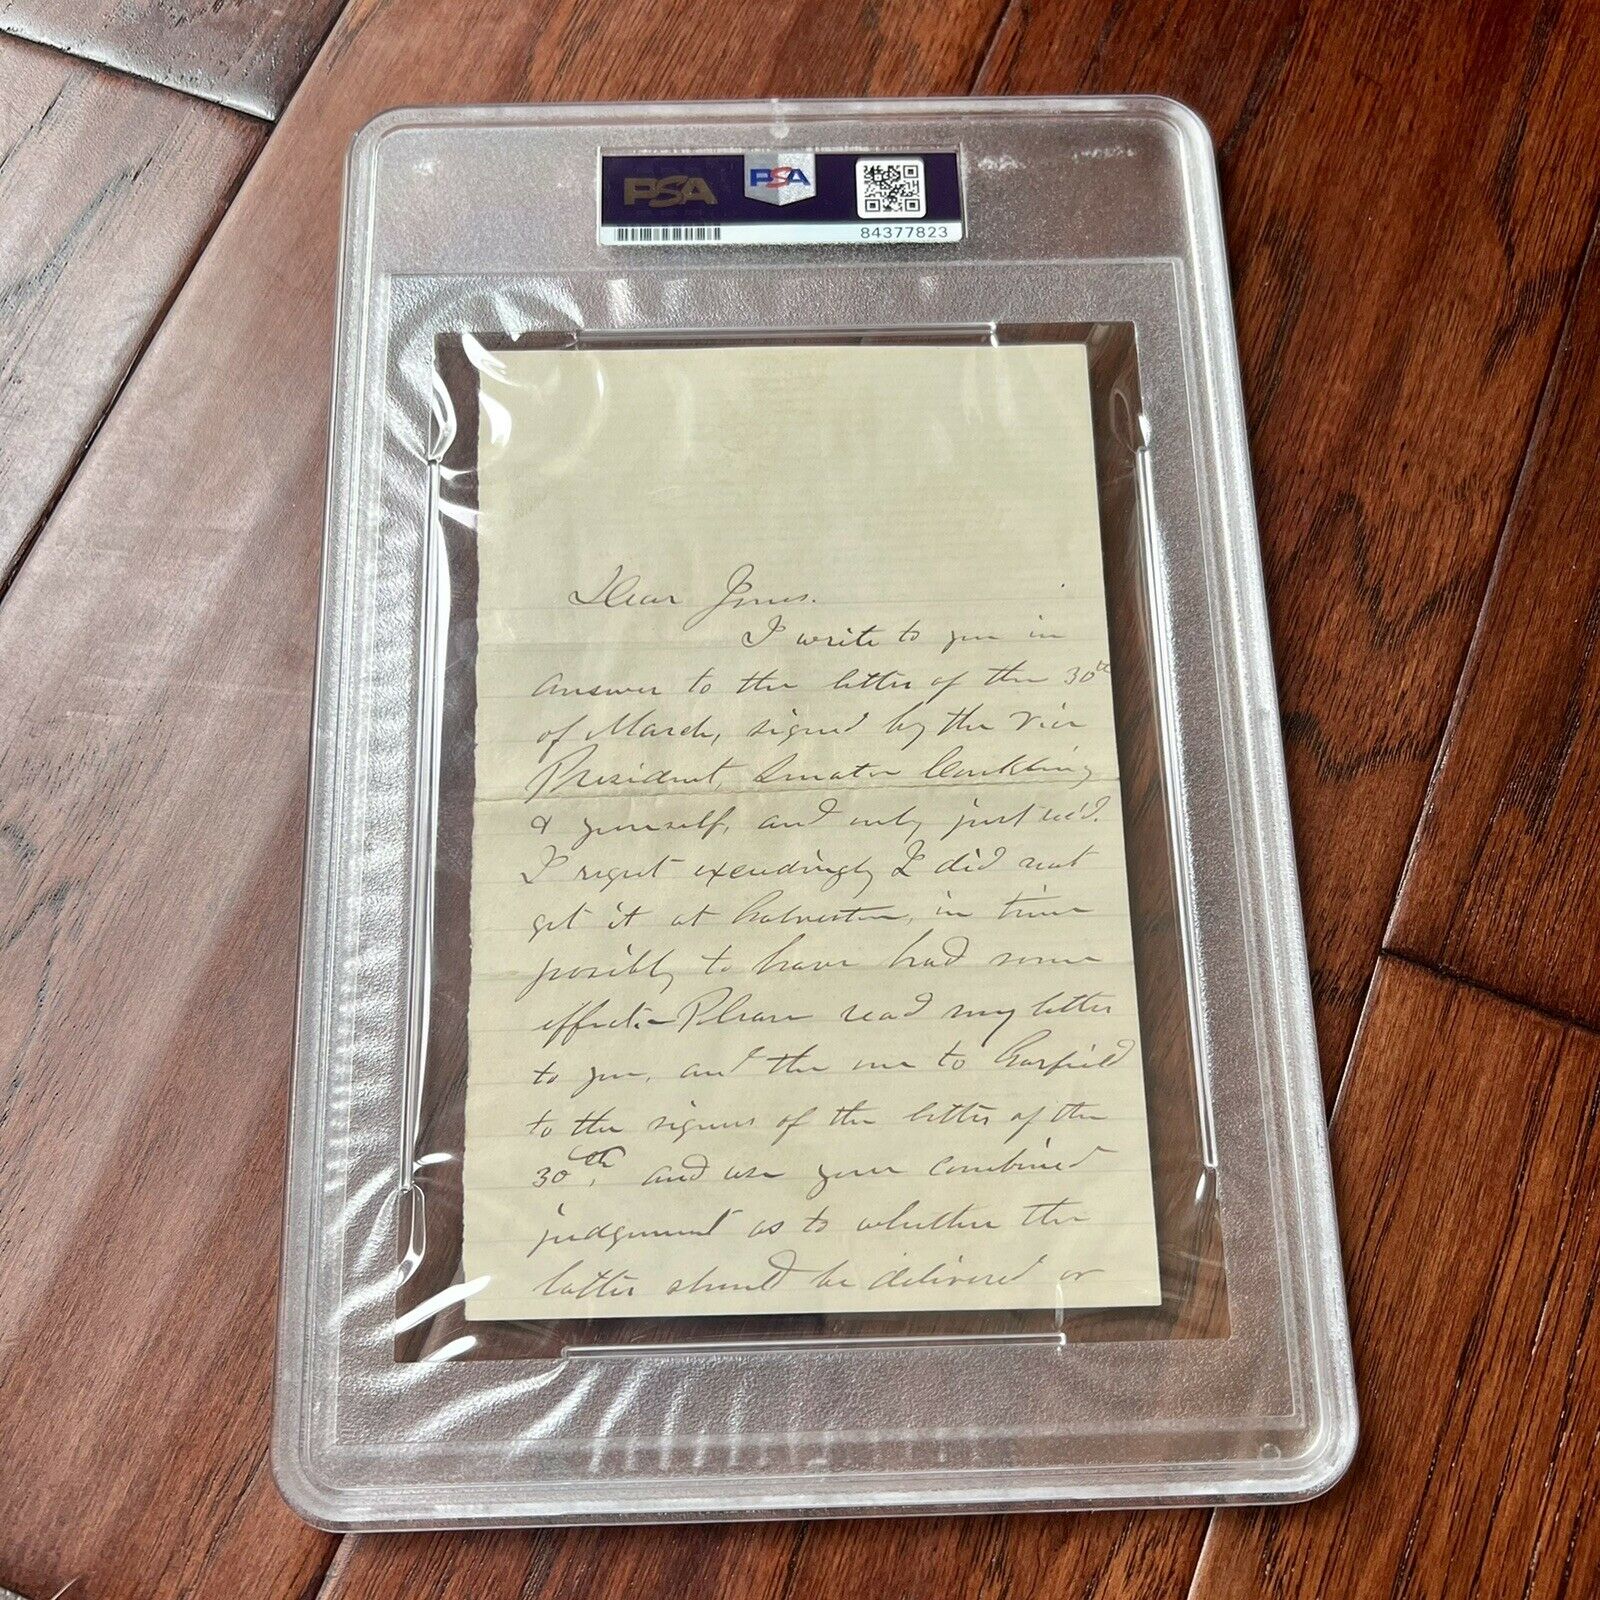 PSA
PSA
84377823
Dear Jones.
I write to you in
answer to the letter of the 30th
of March, signed by the Vice
President, Senator Conkling
& yourself, and only just rec'd.
I regret exceedingly I did not
get it at Galveston, in time
possibly to have had some
effect.— Please read my letter
to you, and the one to Garfield
to the signers of the letter of the
30th, and use your combined
judgement as to whether the
latter should be delivered or